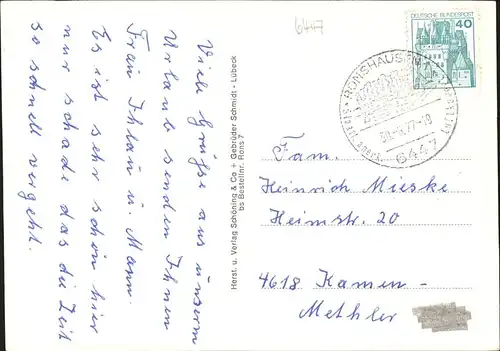 6447
Viele Grüße aus unserm
Urlaub senden Ihnen
Frau Ihlau u. Mann.
Es ist sehr schön hier
nur schade das die Zeit
so schnell vergeht.
Herst. u. Verlag Schöning & Co + Gebrüder Schmidt - Lübeck
bs Bestellnr. Rons 7
DEUTSCHE BUNDESPOST
40
RONSHAUSEN
staatl. anerk.
6447
Fam.
Heinrich Mieske
Heimstr. 20
4618 Kamen-
Methler